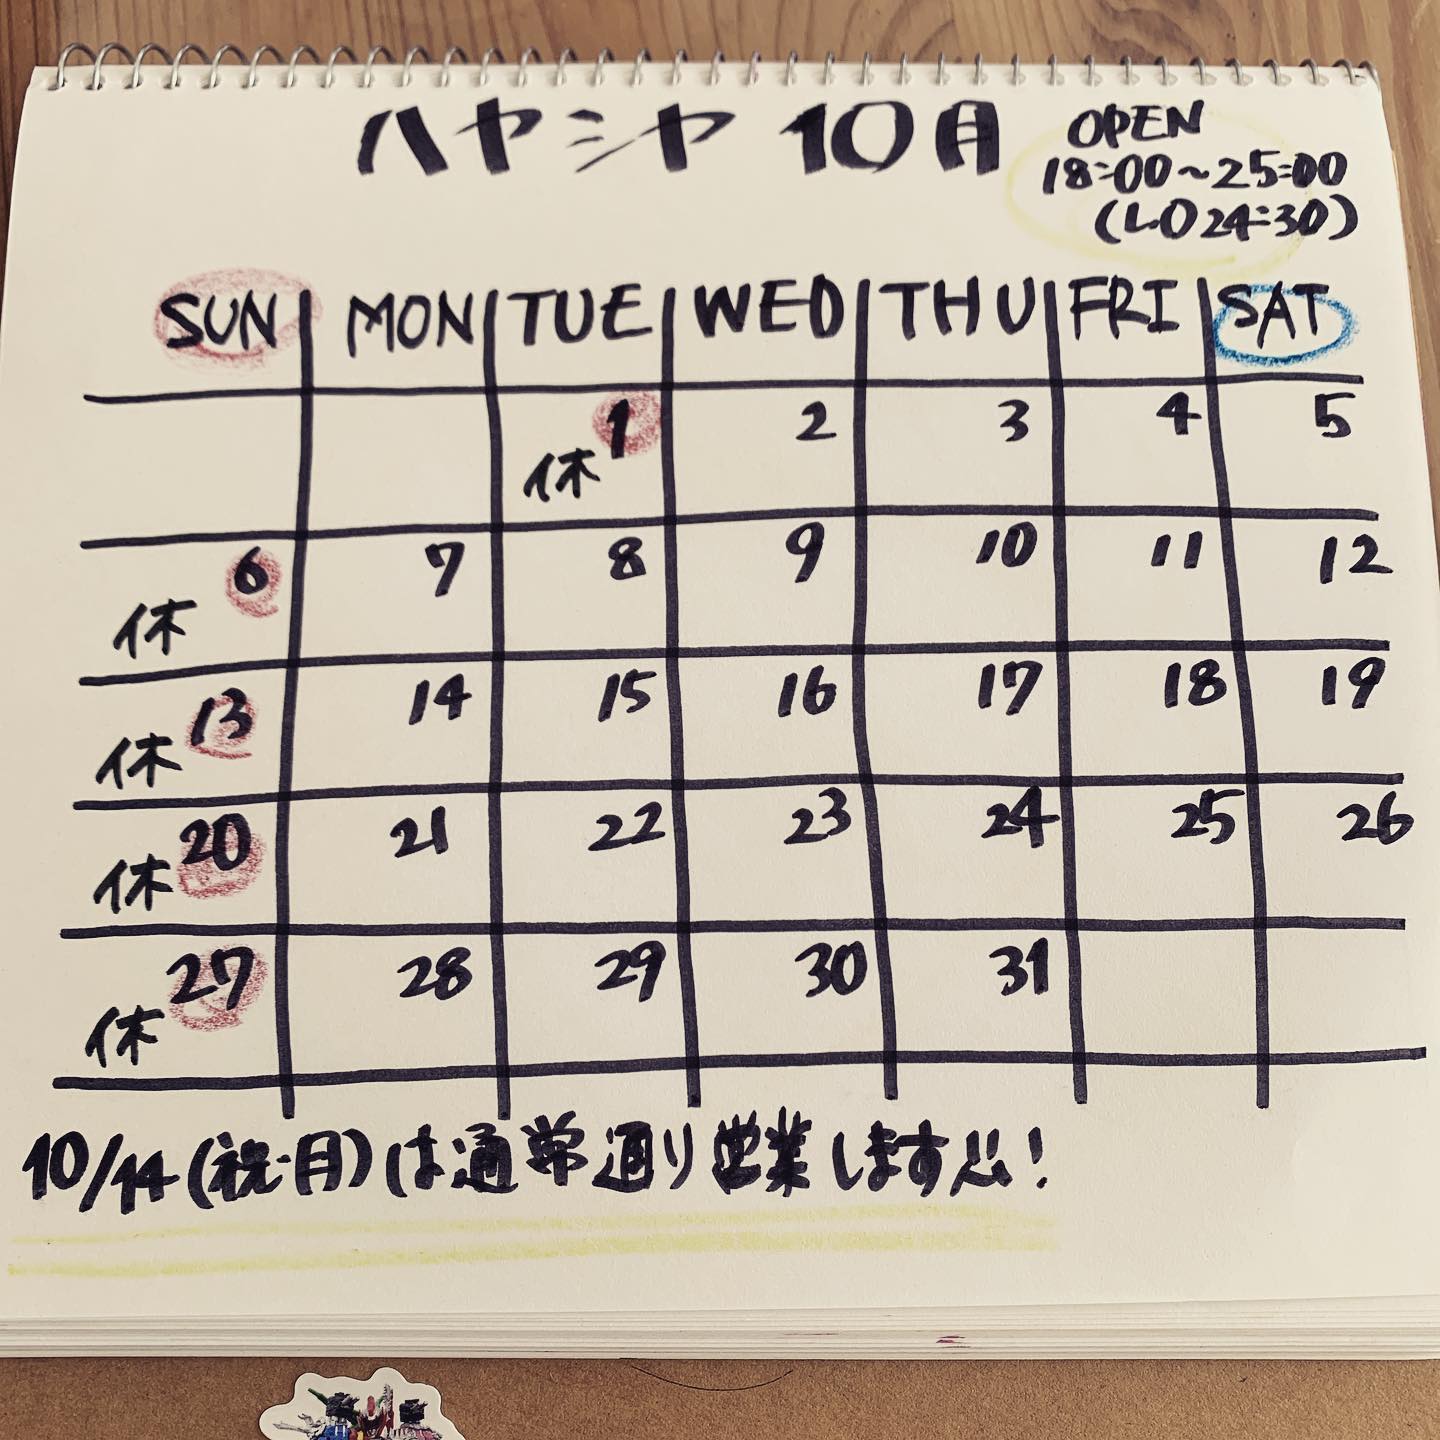 ハヤシヤ 10月
OPEN
18:00~25:00
(L.O 24:30)
SUN MON TUE WED THU FRI SAT
1 2 3 4 5
休
6 7 8 9 10 11 12
休
13 14 15 16 17 18 19
休
20 21 22 23 24 25 26
休
27 28 29 30 31
休
10/14(祝・月)は通常通り営業します!